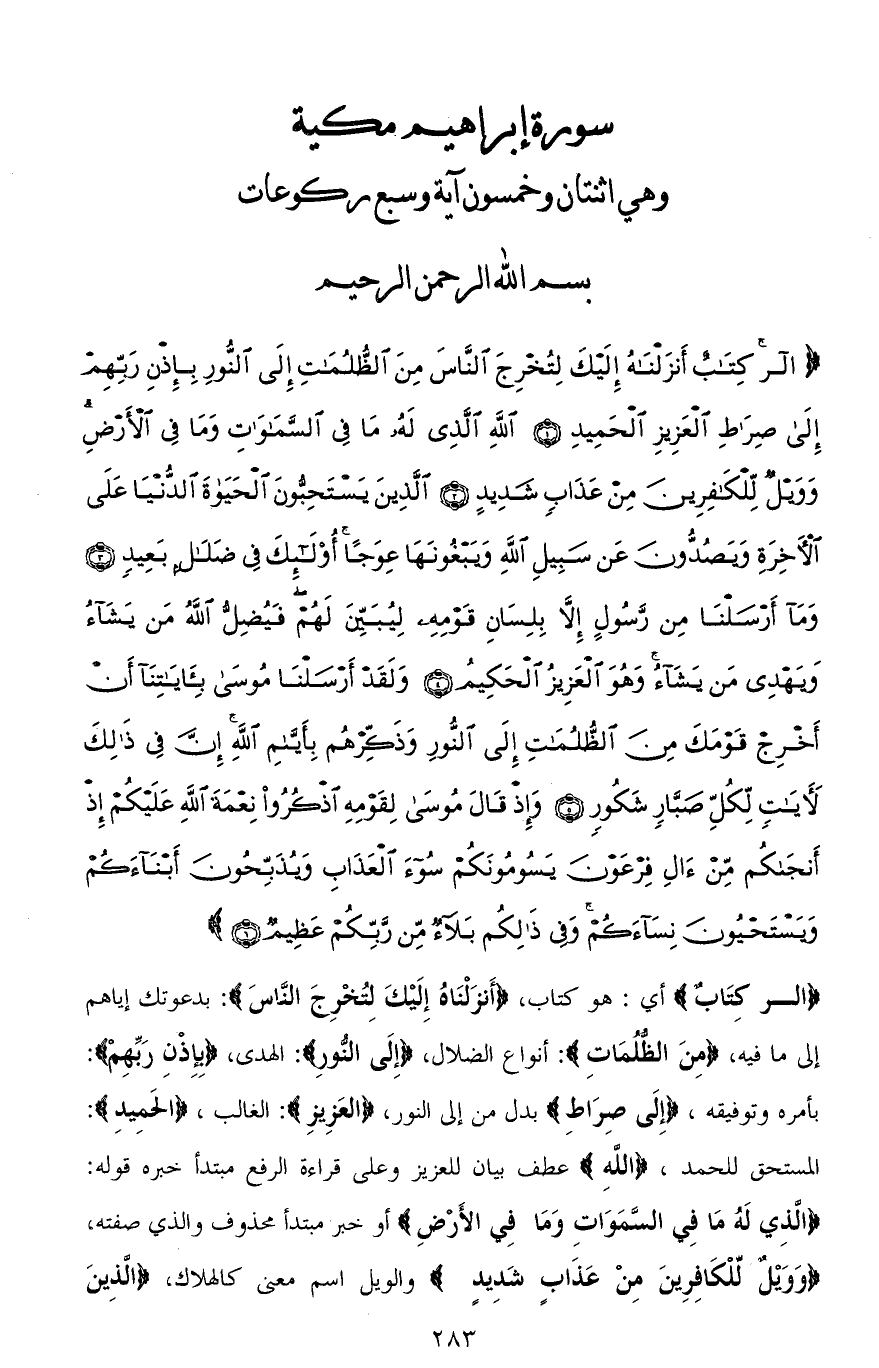 سورة إبراهيم مكية
وهي اثنتان وخمسون آية وسبع ركوعات
بسم الله الرحمن الرحيم
﴿ الٓر ۚ كِتَٰبٌ أَنزَلْنَٰهُ إِلَيْكَ لِتُخْرِجَ ٱلنَّاسَ مِنَ ٱلظُّلُمَٰتِ إِلَى ٱلنُّورِ بِإِذْنِ رَبِّهِمْ
إِلَىٰ صِرَٰطِ ٱلْعَزِيزِ ٱلْحَمِيدِ ۝١ ٱللَّهِ ٱلَّذِى لَهُۥ مَا فِى ٱلسَّمَٰوَٰتِ وَمَا فِى ٱلْأَرْضِ ۗ
وَوَيْلٌ لِّلْكَٰفِرِينَ مِنْ عَذَابٍ شَدِيدٍ ۝٢ ٱلَّذِينَ يَسْتَحِبُّونَ ٱلْحَيَوٰةَ ٱلدُّنْيَا عَلَى
ٱلْأَخِرَةِ وَيَصُدُّونَ عَن سَبِيلِ ٱللَّهِ وَيَبْغُونَهَا عِوَجًا ۚ أُو۟لَٰٓئِكَ فِى ضَلَٰلٍۭ بَعِيدٍ ۝٣
وَمَآ أَرْسَلْنَا مِن رَّسُولٍ إِلَّا بِلِسَانِ قَوْمِهِۦ لِيُبَيِّنَ لَهُمْ ۖ فَيُضِلُّ ٱللَّهُ مَن يَشَآءُ
وَيَهْدِى مَن يَشَآءُ ۚ وَهُوَ ٱلْعَزِيزُ ٱلْحَكِيمُ ۝٤ وَلَقَدْ أَرْسَلْنَا مُوسَىٰ بِـَٔايَٰتِنَآ أَنْ
أَخْرِجْ قَوْمَكَ مِنَ ٱلظُّلُمَٰتِ إِلَى ٱلنُّورِ وَذَكِّرْهُم بِأَيَّىٰمِ ٱللَّهِ ۚ إِنَّ فِى ذَٰلِكَ
لَأَيَٰتٍ لِّكُلِّ صَبَّارٍ شَكُورٍ ۝٥ وَإِذْ قَالَ مُوسَىٰ لِقَوْمِهِ ٱذْكُرُوا۟ نِعْمَةَ ٱللَّهِ عَلَيْكُمْ إِذْ
أَنجَىٰكُم مِّنْ ءَالِ فِرْعَوْنَ يَسُومُونَكُمْ سُوٓءَ ٱلْعَذَابِ وَيُذَبِّحُونَ أَبْنَآءَكُمْ
وَيَسْتَحْيُونَ نِسَآءَكُمْ ۚ وَفِى ذَٰلِكُم بَلَآءٌ مِّن رَّبِّكُمْ عَظِيمٌ ۝٦ ﴾
﴿الــر كِتَابٌ﴾ أي : هو كتاب، ﴿أَنزَلْنَاهُ إِلَيْكَ لِتُخْرِجَ النَّاسَ﴾: بدعوتك إياهم
إلى ما فيه، ﴿مِنَ الظُّلُمَاتِ ﴾: أنواع الضلال، ﴿إِلَى النُّورِ﴾: الهدى، ﴿بِإِذْنِ رَبِّهِمْ﴾:
بأمره وتوفيقه ، ﴿إِلَى صِرَاطِ ﴾ بدل من إلى النور، ﴿العَزِيزِ ﴾: الغالب ، ﴿الحَمِيدِ ﴾:
المستحق للحمد ، ﴿اللَّهِ ﴾ عطف بيان للعزيز وعلى قراءة الرفع مبتدأ خبره قوله:
﴿الَّذِي لَهُ مَا فِي السَّمَوَاتِ وَمَا فِي الأَرْضِ ﴾ أو خبر مبتدأ محذوف والذي صفته،
﴿وَوَيْلٌ لِّلْكَافِرِينَ مِنْ عَذَابٍ شَدِيدٍ ﴾ والويل اسم معنى كالهلاك، ﴿الَّذِينَ
٢٨٣